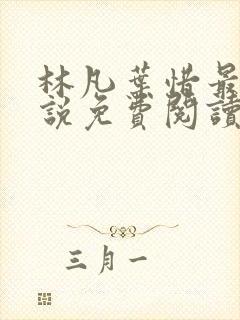 林凡葉惜最
說免費閱讀
三月一